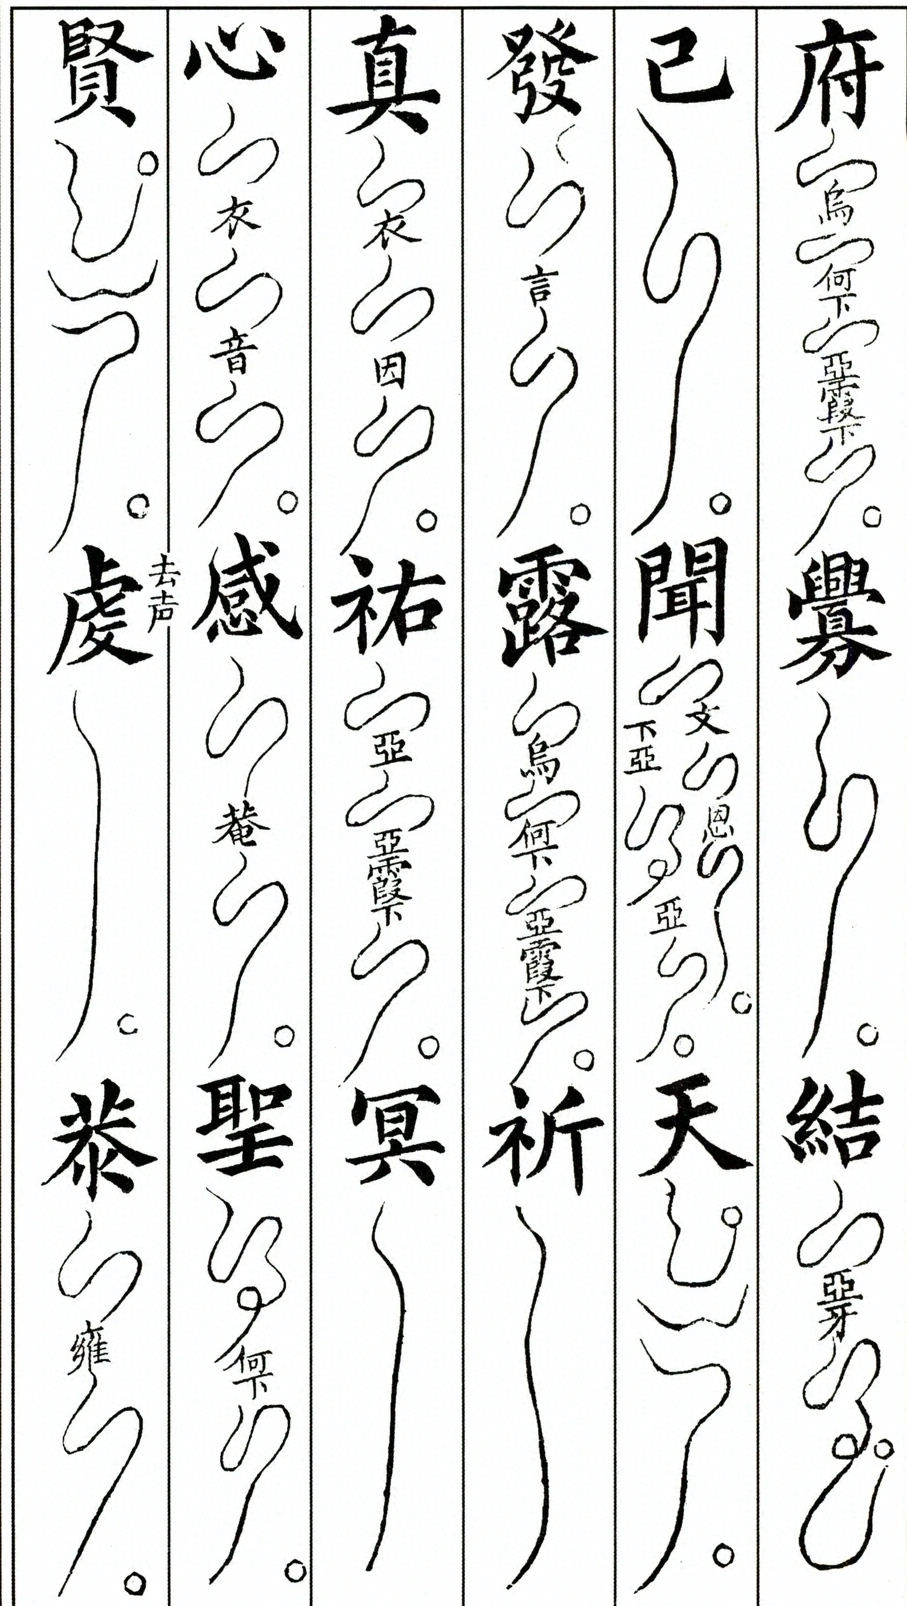 府烏何下亞霞下釁結亞牙
已聞文恩下亞亞天
發言露烏何下亞霞下祈
真衣因祐亞亞霞下冥
心衣音感菴聖何下
賢虔去声恭雍